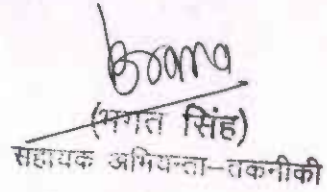 (भगत सिंह)
सहायक अभियन्ता-तकनीकी